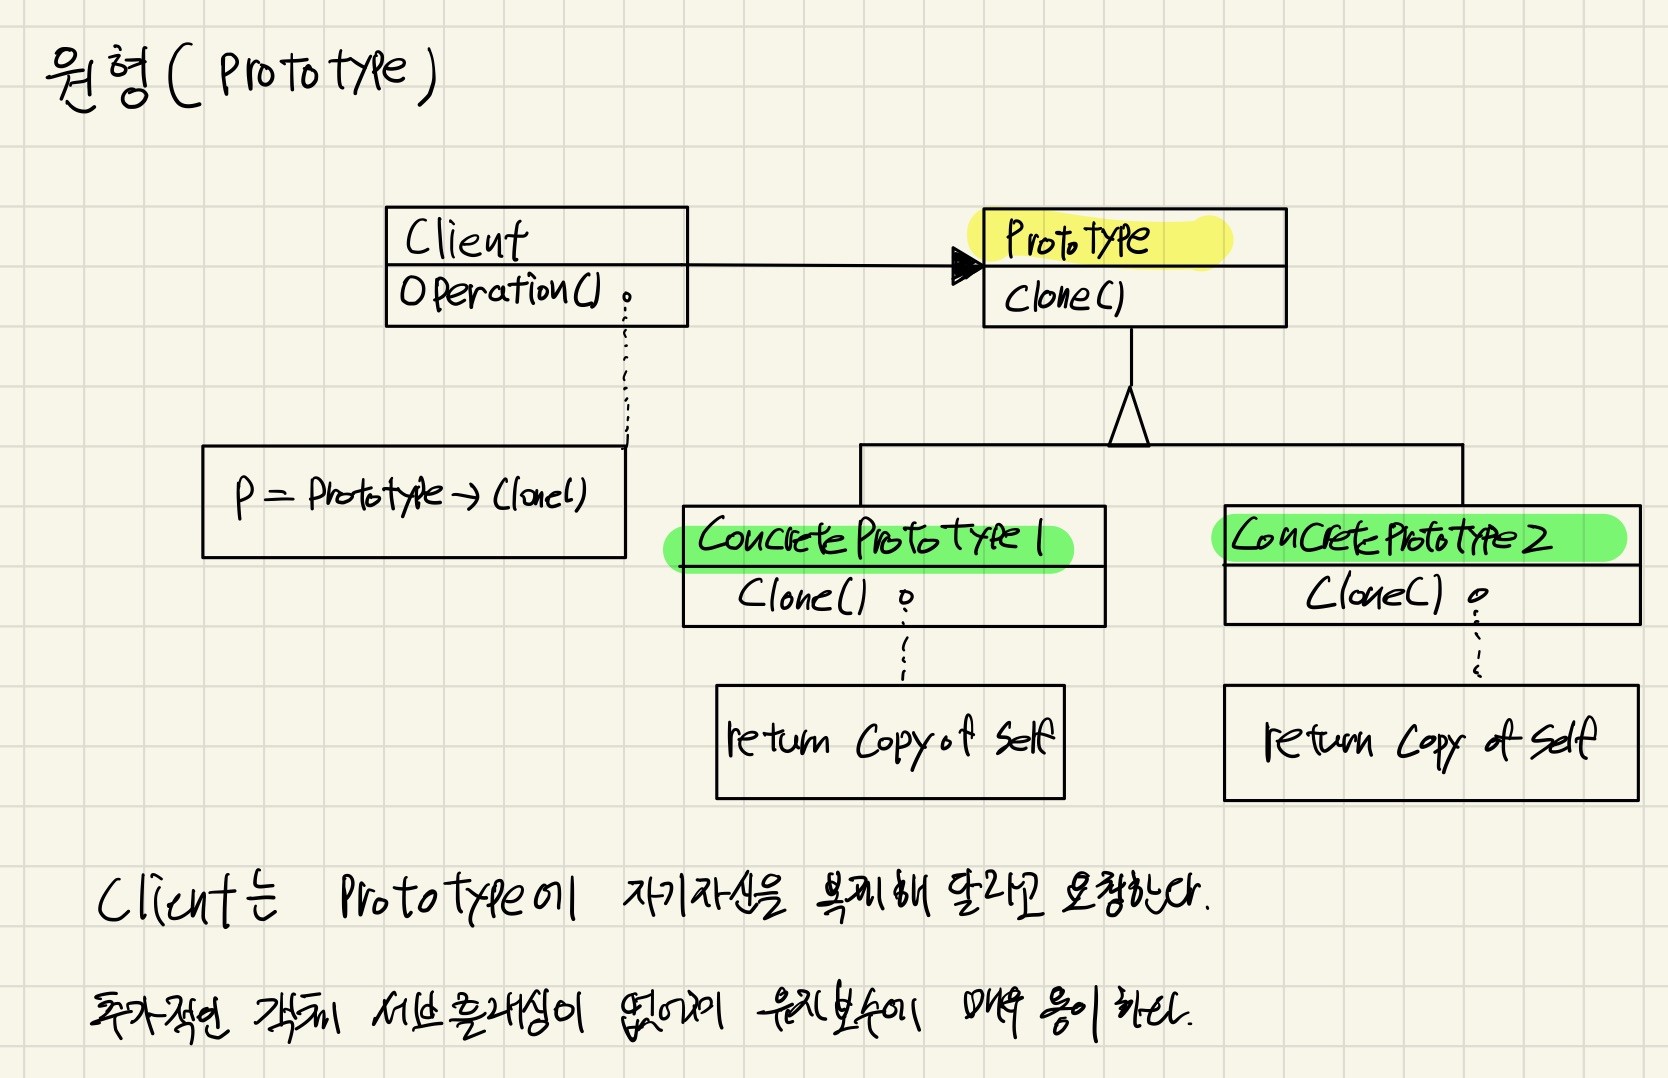 원형(Prototype)
Client
Operation()
Prototype
Clone()
P = Prototype → Clone()
ConcretePrototype1
Clone()
ConcretePrototype2
Clone()
return Copy of Self
return Copy of Self
Client는 Prototype에 자기자신을 복제해 달라고 요청한다.
추가적인 객체 서브클래싱이 없어져 유지보수에 매우 용이하다.